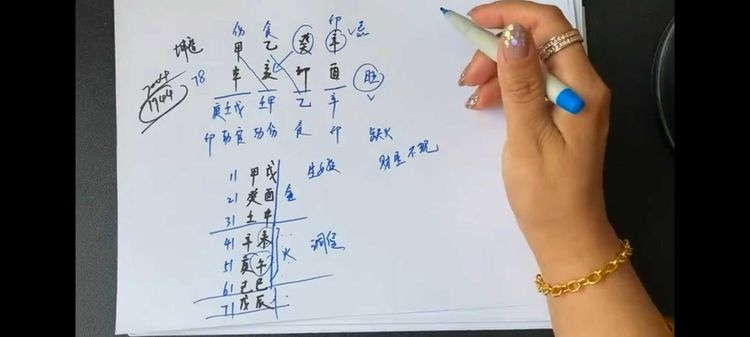 伤 食 印
坤造 甲 乙 癸 辛 √忌
1944 78 申 亥 卯 酉 旺 √
庚壬戊 壬甲 乙 辛
印劫官 劫伤 食 印 缺火
11 甲戌 财星不现
21 癸酉 金
31 壬申
41 辛未 调候
51 庚午 火
61 己巳
71 戊辰